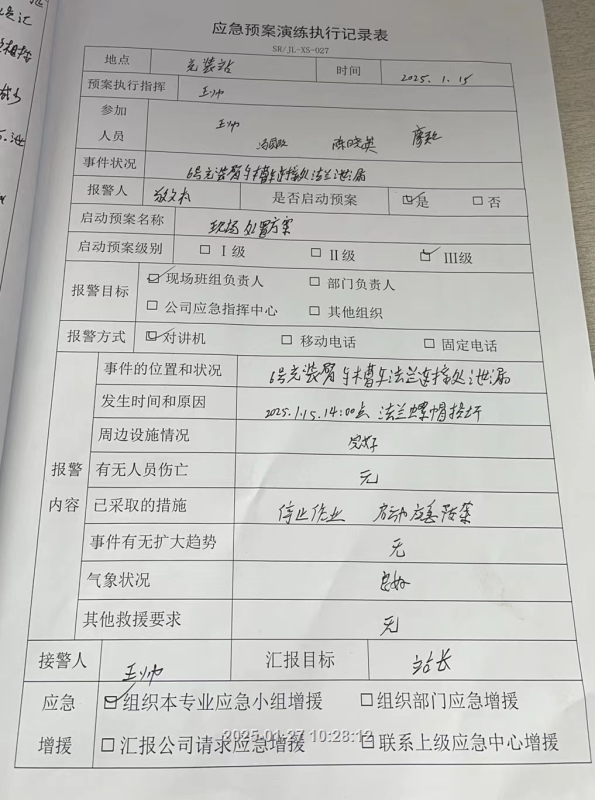 应急预案演练执行记录表
SR/JL-XS-027
地点 充装站 时间 2025.1.15
预案执行指挥 王帅
参加人员 王帅 陈晓英
事件状况 6号充装臂与槽车连接处法兰泄漏
报警人 是否启动预案 ☑是 □否
启动预案名称 现场处置方案
启动预案级别 □Ⅰ级 □Ⅱ级 ☑Ⅲ级
报警目标 ☑现场班组负责人 □部门负责人
□公司应急指挥中心 □其他组织
报警方式 ☑对讲机 □移动电话 □固定电话
报警内容
事件的位置和状况 6号充装臂与槽车法兰连接处泄漏
发生时间和原因 2025.1.15.14:00点 法兰螺帽损坏
周边设施情况 完好
有无人员伤亡 无
已采取的措施 停止作业 启动应急预案
事件有无扩大趋势 无
气象状况 良好
其他救援要求 无
接警人 王帅 汇报目标 站长
应急增援 ☑组织本专业应急小组增援 □组织部门应急增援
□汇报公司请求应急增援 □联系上级应急中心增援
2025-01-27 10:28:12